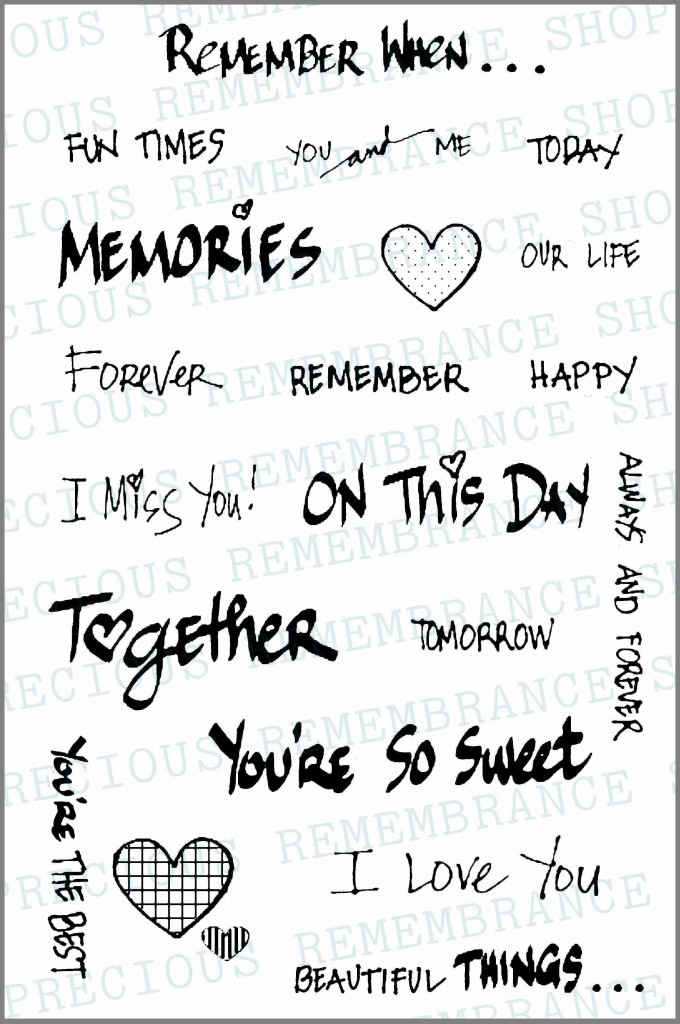 REMEMBER WHEN...
FUN TIMES
YOU and ME
TODAY
MEMORIES
OUR LIFE
FOREVER
REMEMBER
HAPPY
I MISS YOU!
ON THIS DAY
ALWAYS AND FOREVER
Together
TOMORROW
YOU'RE SO SWEET
YOU'RE THE BEST
I LOVE YOU
BEAUTIFUL THINGS...
PRECIOUS REMEMBRANCE SHOP